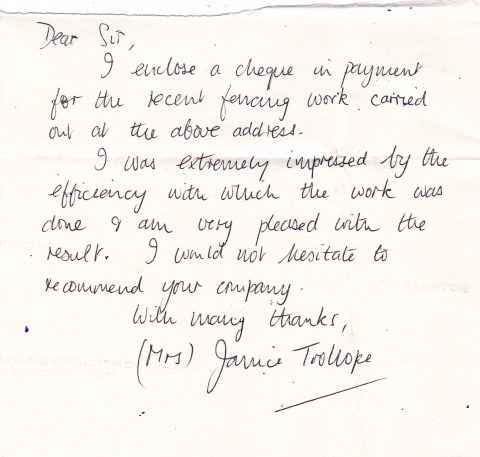 Dear Sir,
I enclose a cheque in payment
for the recent fencing work carried
out at the above address.
I was extremely impressed by the
efficiency with which the work was
done & am very pleased with the
result. I would not hesitate to
recommend your company.
With many thanks,
(Mrs) Janice Trollope